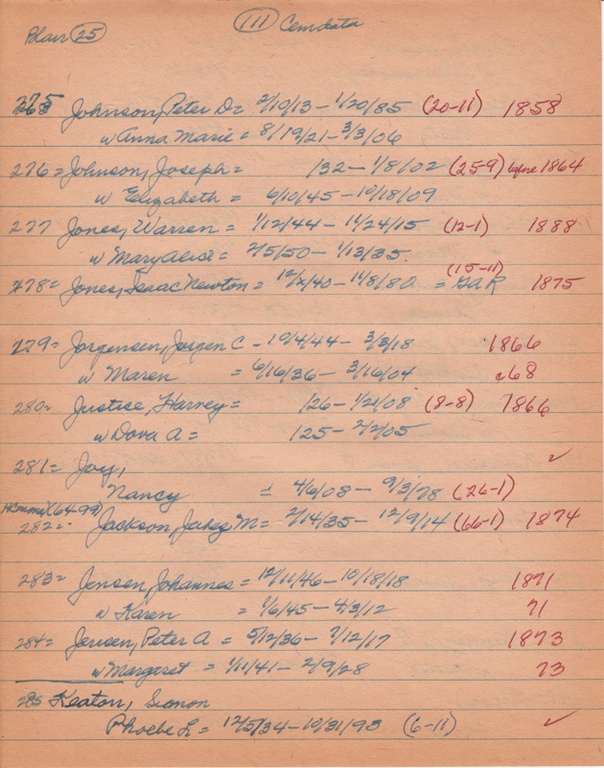 Blair 25 111 Cemdata
275 Johnson, Peter D = 2/10/13 - 1/20/85 (20-11) 1858
w Anna Marie = 8/19/21 - 3/3/06
276 = Johnson, Joseph = /32 - 1/8/02 (25-9) before 1864
w Elizabeth = 6/10/45 - 10/18/09
277 Jones, Warren = 1/12/44 - 11/24/15 (12-1) 1888
w Mary Alice = 2/5/50 - 1/13/35
(15-11)
278 = Jones, Isaac Newton = 12/x/40 - 11/8/80 = GAR 1875
279 = Jorgensen, Jorgen C - 10/4/44 - 3/3/18 1866
w Maren = 6/16/36 - 3/16/04 68
280 = Justice, Harvey = /26 - 1/21/08 (8-8) 1866
w Dova A = /25 - 2/2/05
281 = Joy, ✓
Nancy = 4/6/08 - 9/3/78 (26-1)
(64-99)
282 = Jackson, M = 2/14/35 - 12/9/14 (66-1) 1874
283 = Jensen, Johannes = 12/11/46 - 10/18/18 1871
w Karen = 1/6/45 - 4/3/12 71
284 = Jensen, Peter A = 5/12/36 - 7/12/17 1873
w Margaret = 1/11/41 - 2/9/28 73
285 Keaton, Simon
Phoebe L = 12/5/34 - 10/31/93 (6-11) ✓